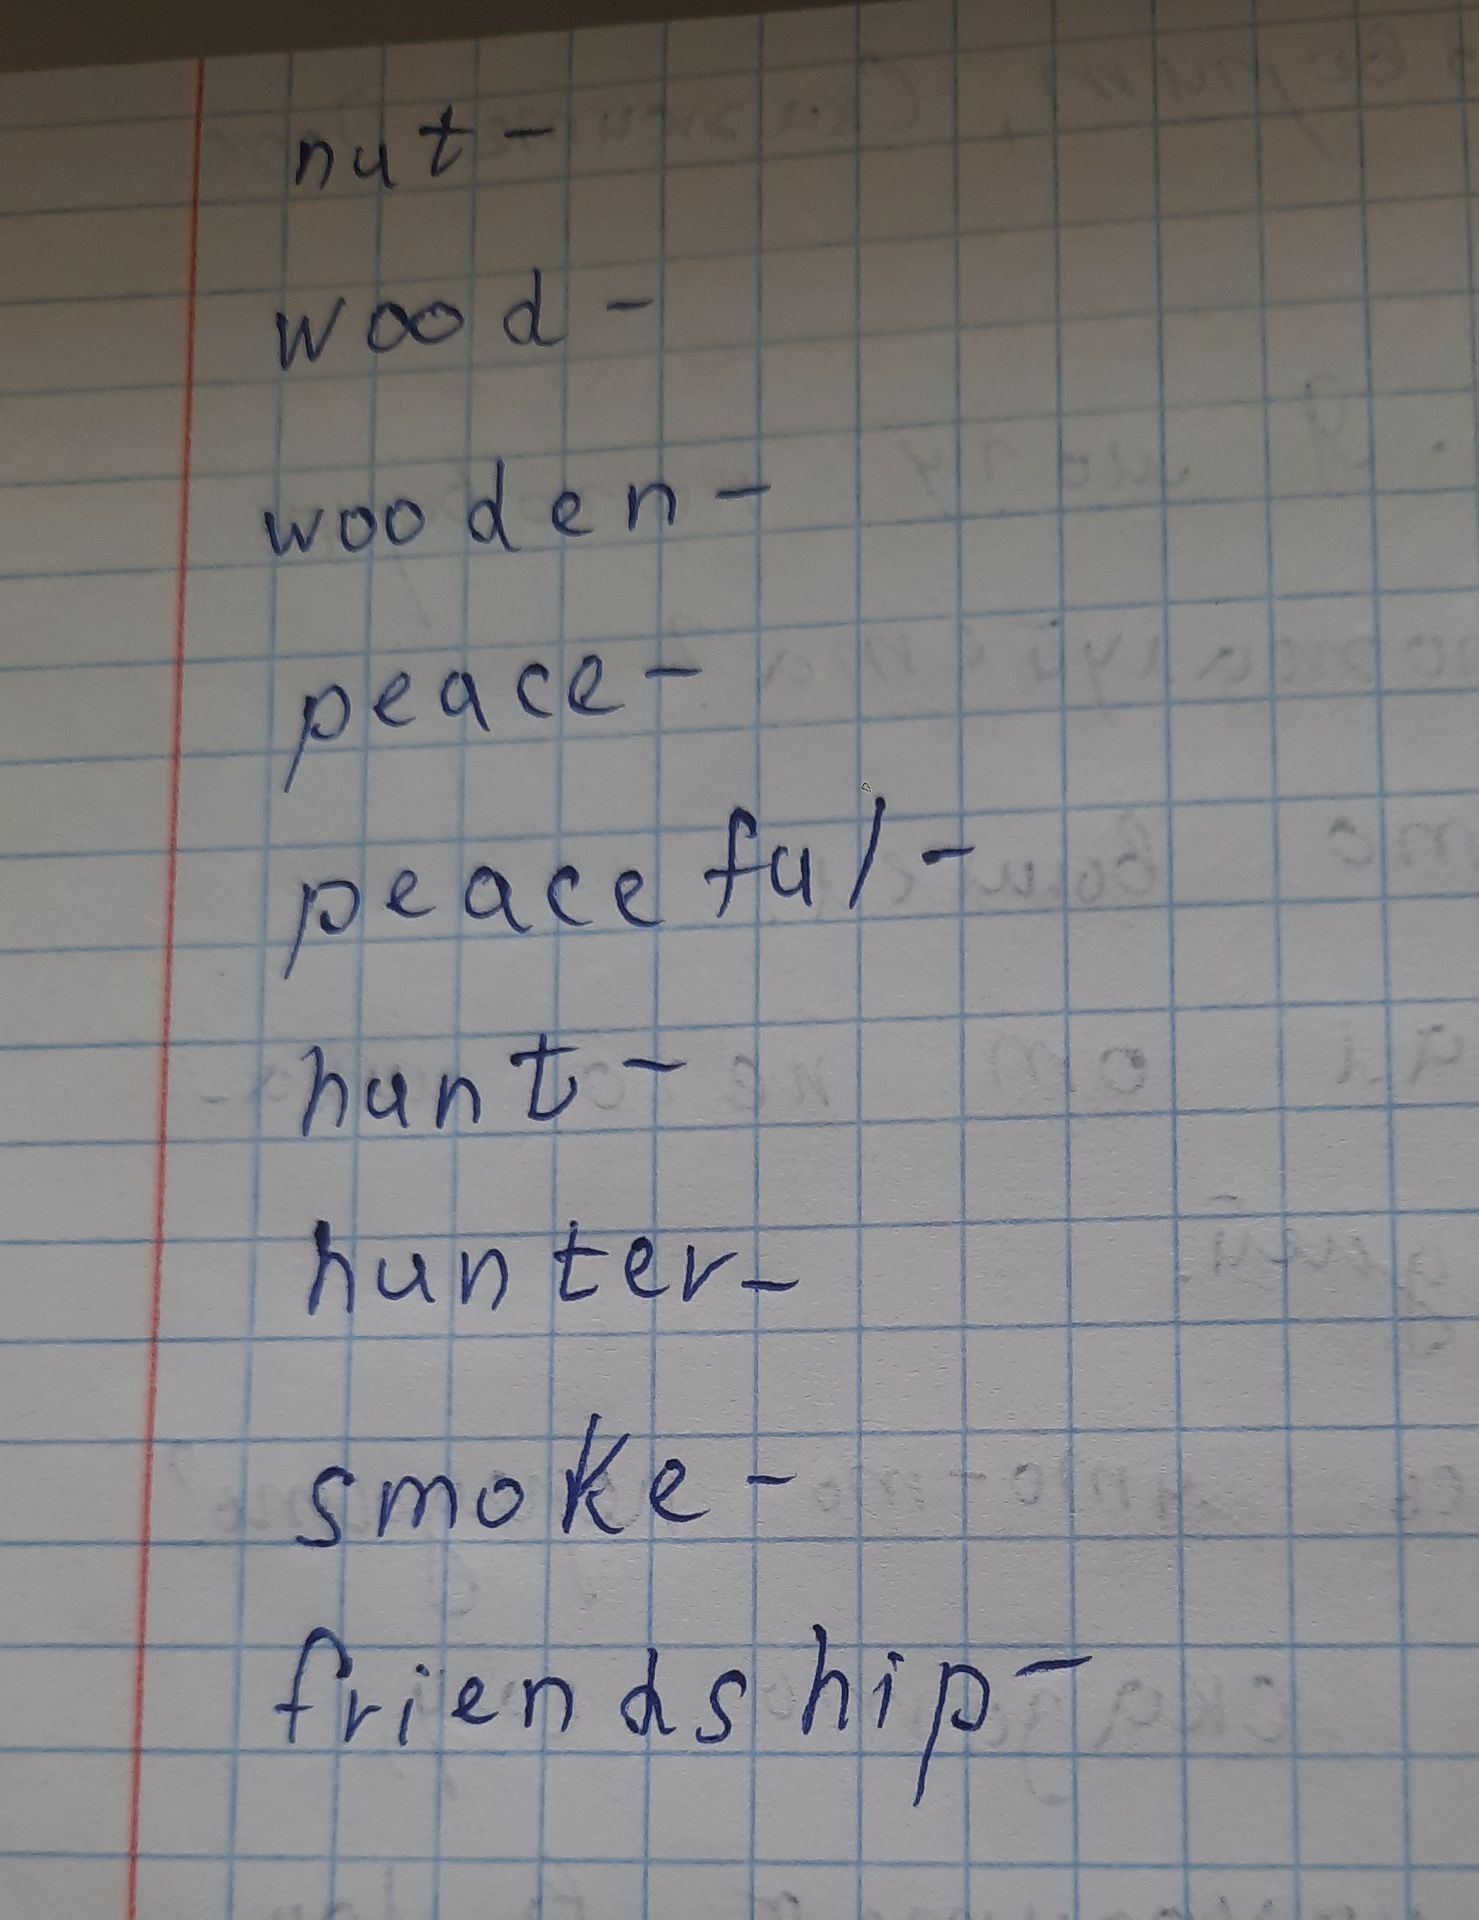 nut -
wood -
wooden -
peace -
peaceful -
hunt -
hunter -
smoke -
friendship -